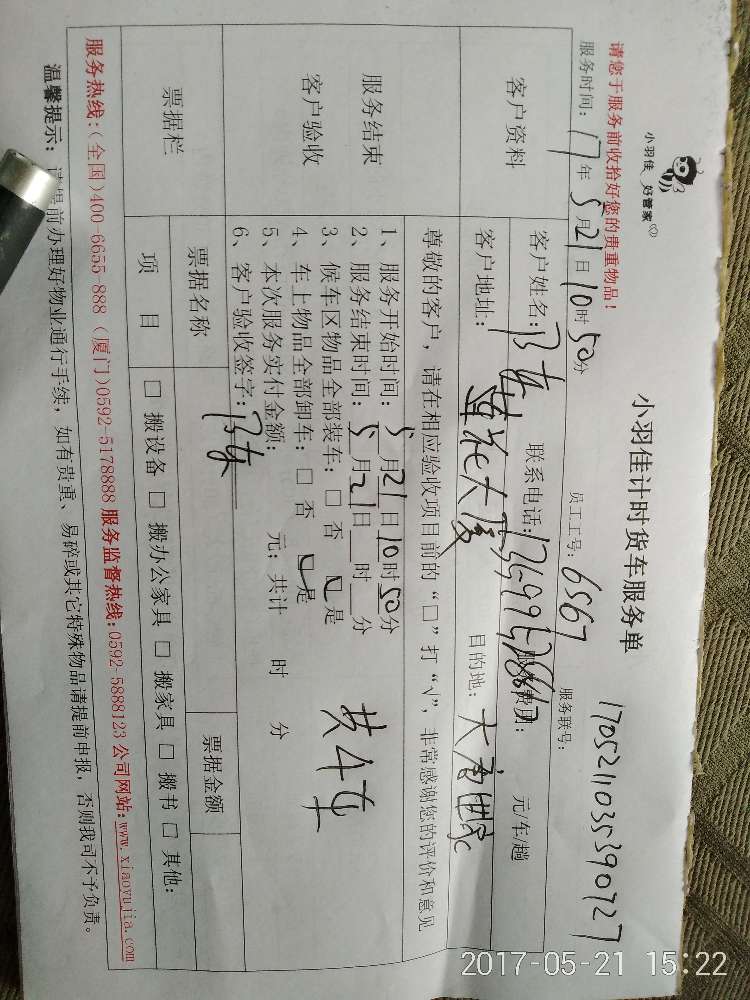 小羽佳 好管家
小羽佳计时货车服务单
1705211035390727
请您于服务前收拾好您的贵重物品!
员工工号: 6567 服务联号:
服务时间: 17年5月21日10时50分
客户资料
客户姓名: 联系电话: 服务费用: 元/车/趟
客户地址: 莲花大厦 目的地: 大唐世家
服务结束
客户验收
尊敬的客户,请在相应验收项目前的“□”打“√”,非常感谢您的评价和意见
1、服务开始时间: 5月21日10时50分
2、服务结束时间: 5月21日 时 分
3、候车区物品全部装车: □ 否 □ 是
4、车上物品全部卸车: □ 否 □ 是
5、本次服务实付金额: 元; 共计 时 分
共4车
6、客户验收签字:
票据栏
票据名称 票据金额
项 目 □ 搬设备 □ 搬办公家具 □ 搬家具 □ 搬书 □ 其他:
服务热线:(全国)400-6655-888 (厦门)0592-5178888 服务监督热线:0592-5888123 公司网站:www.xiaoyujia.com
温馨提示: 请提前办理好物业通行手续,如有贵重、易碎或其它特殊物品请提前申报,否则我司不予负责。
2017-05-21 15:22